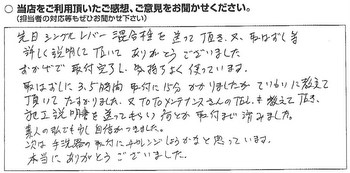 ○ 当店をご利用頂いたご感想、ご意見をお聞かせください。
(担当者の対応等もぜひお聞かせ下さい)
先日シングルレバー混合栓を送って頂き、又、取はずし等
詳しく説明して頂いてありがとうございました
おかげで取付完了し、気持ちよく使っています。
取はずしに3.5時間 取付に15分かかりましたがていねいに教えて
頂いてたすかりました。又TOTOメンテナンスさんのTELも教えて頂き、
施工説明書を送ってもらい何とか取付まで済みました。
素人の私でも少し自信がつきました。
次は手洗器の取付にチャレンジしようかなと思っています。
本当にありがとうございました。